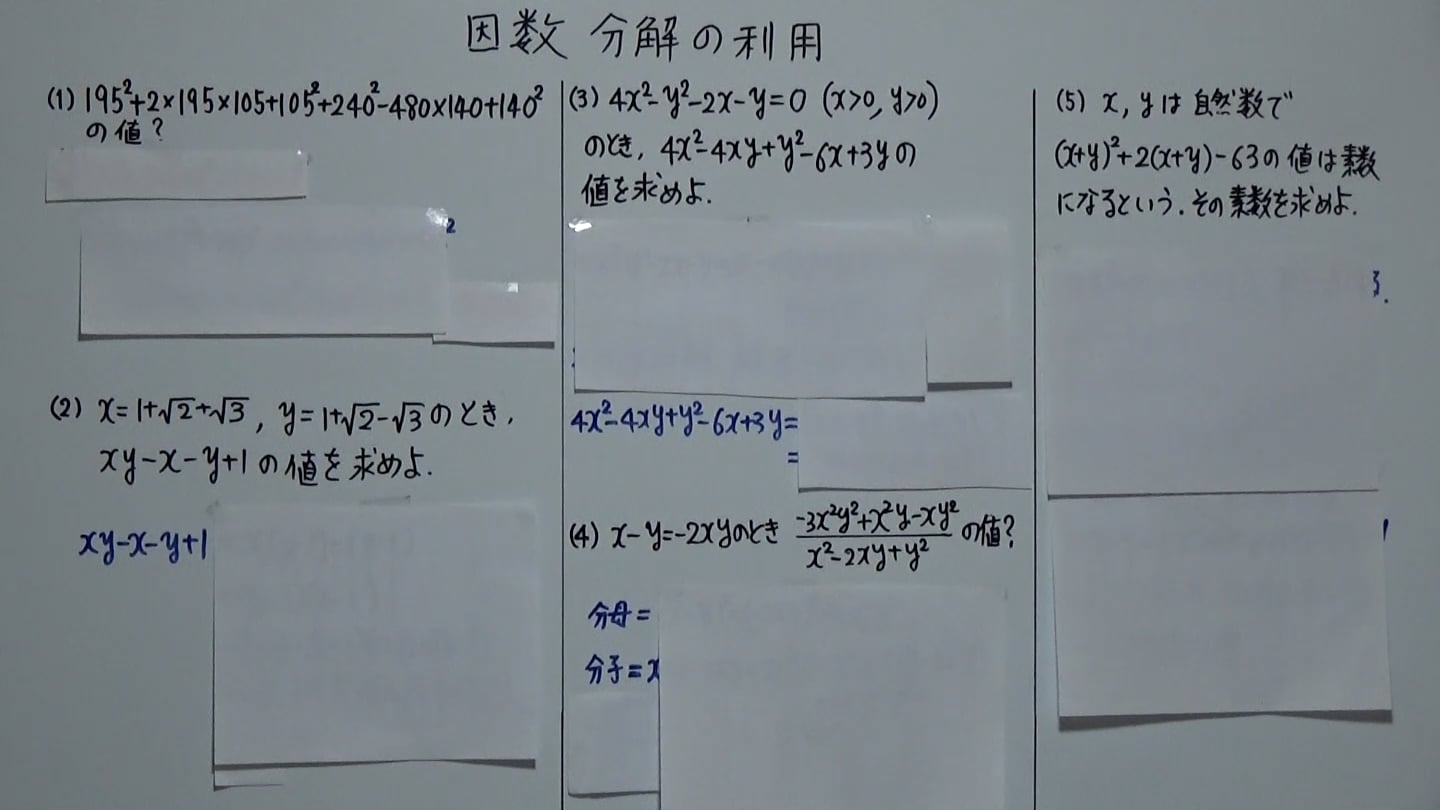 因数分解の利用
(1) 195²+2×195×105+105²+240²-480×140+140²
の値?
2
(2) x=1+√2+√3, y=1+√2-√3のとき,
xy-x-y+1の値を求めよ.
xy-x-y+1
(3) 4x²-y²-2x-y=0 (x>0, y>0)
のとき, 4x²-4xy+y²-6x+3yの
値を求めよ.
4x²-4xy+y²-6x+3y=
=
(4) x-y=-2xyのとき (-3x²y²+x²y-xy²)/(x²-2xy+y²) の値?
分母=
分子=x
(5) x, yは自然数で
(x+y)²+2(x+y)-63の値は素数
になるという.その素数を求めよ.